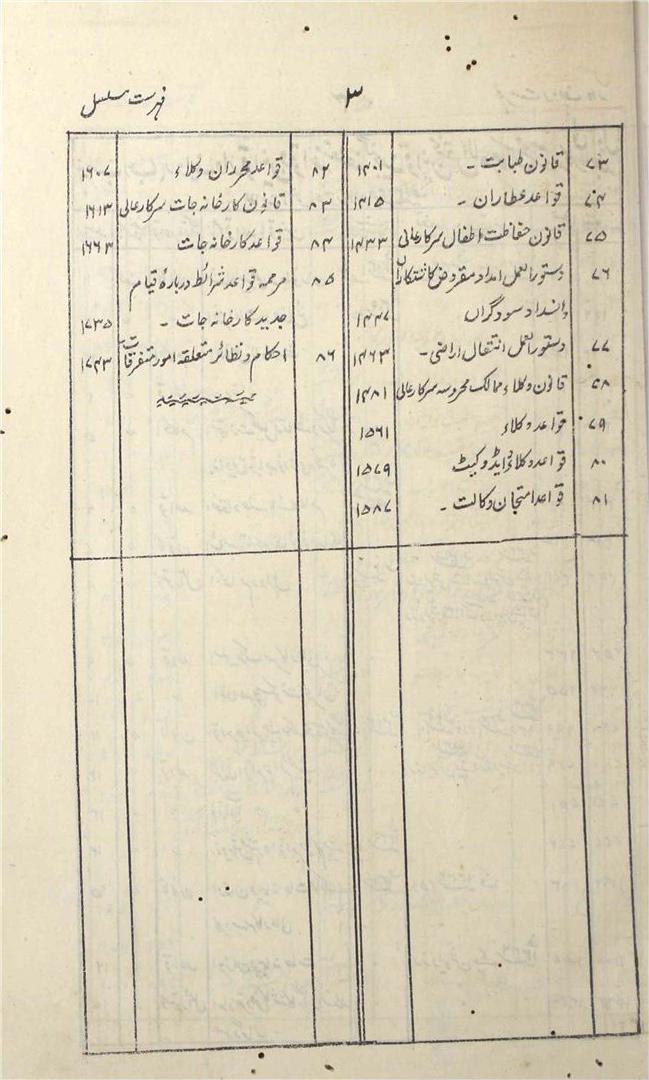 فہرست مسلسل
۳
۷۳ قانون طبابت ۔ ۱۴۰۱
۷۴ قواعد عطاران ۔ ۱۴۱۵
۷۵ قانون حفاظت اطفال سرکار عالی ۱۴۳۳
۷۶ دستور العمل امداد مقروض کاشتکاران
وانسداد سودگراں ۱۴۴۷
۷۷ دستور العمل انتقال اراضی ۔ ۱۴۶۳
۵۸ قانون وکلاء ممالک محروسہ سرکار عالی ۱۴۸۱
۷۹ قواعد وکلاء ۱۵۶۱
۸۰ قواعد وکلائے ایڈوکیٹ ۱۵۷۹
۸۱ قواعد امتحان وکالت ۔ ۱۵۸۷
۸۲ قواعد محرران وکلاء ۱۶۰۷
۸۳ قانون کارخانہ جات سرکار عالی ۱۶۱۳
۸۴ قواعد کارخانہ جات ۱۶۶۳
۸۵ مرممہ قواعد شرائط دربارۂ قیام
جدید کارخانہ جات ۔ ۱۷۳۵
۸۶ احکام و نظائر متعلقہ امور متفرقات ۱۷۴۳